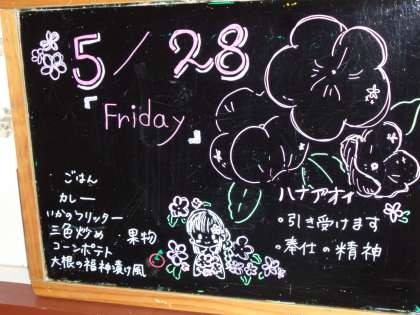 5/28
「Friday」
ごはん
カレー
いかのフリッター
三色炒め
コーンポテト
大根の福神漬け風
果物
ハナアオイ
・引き受けます
・奉仕の精神